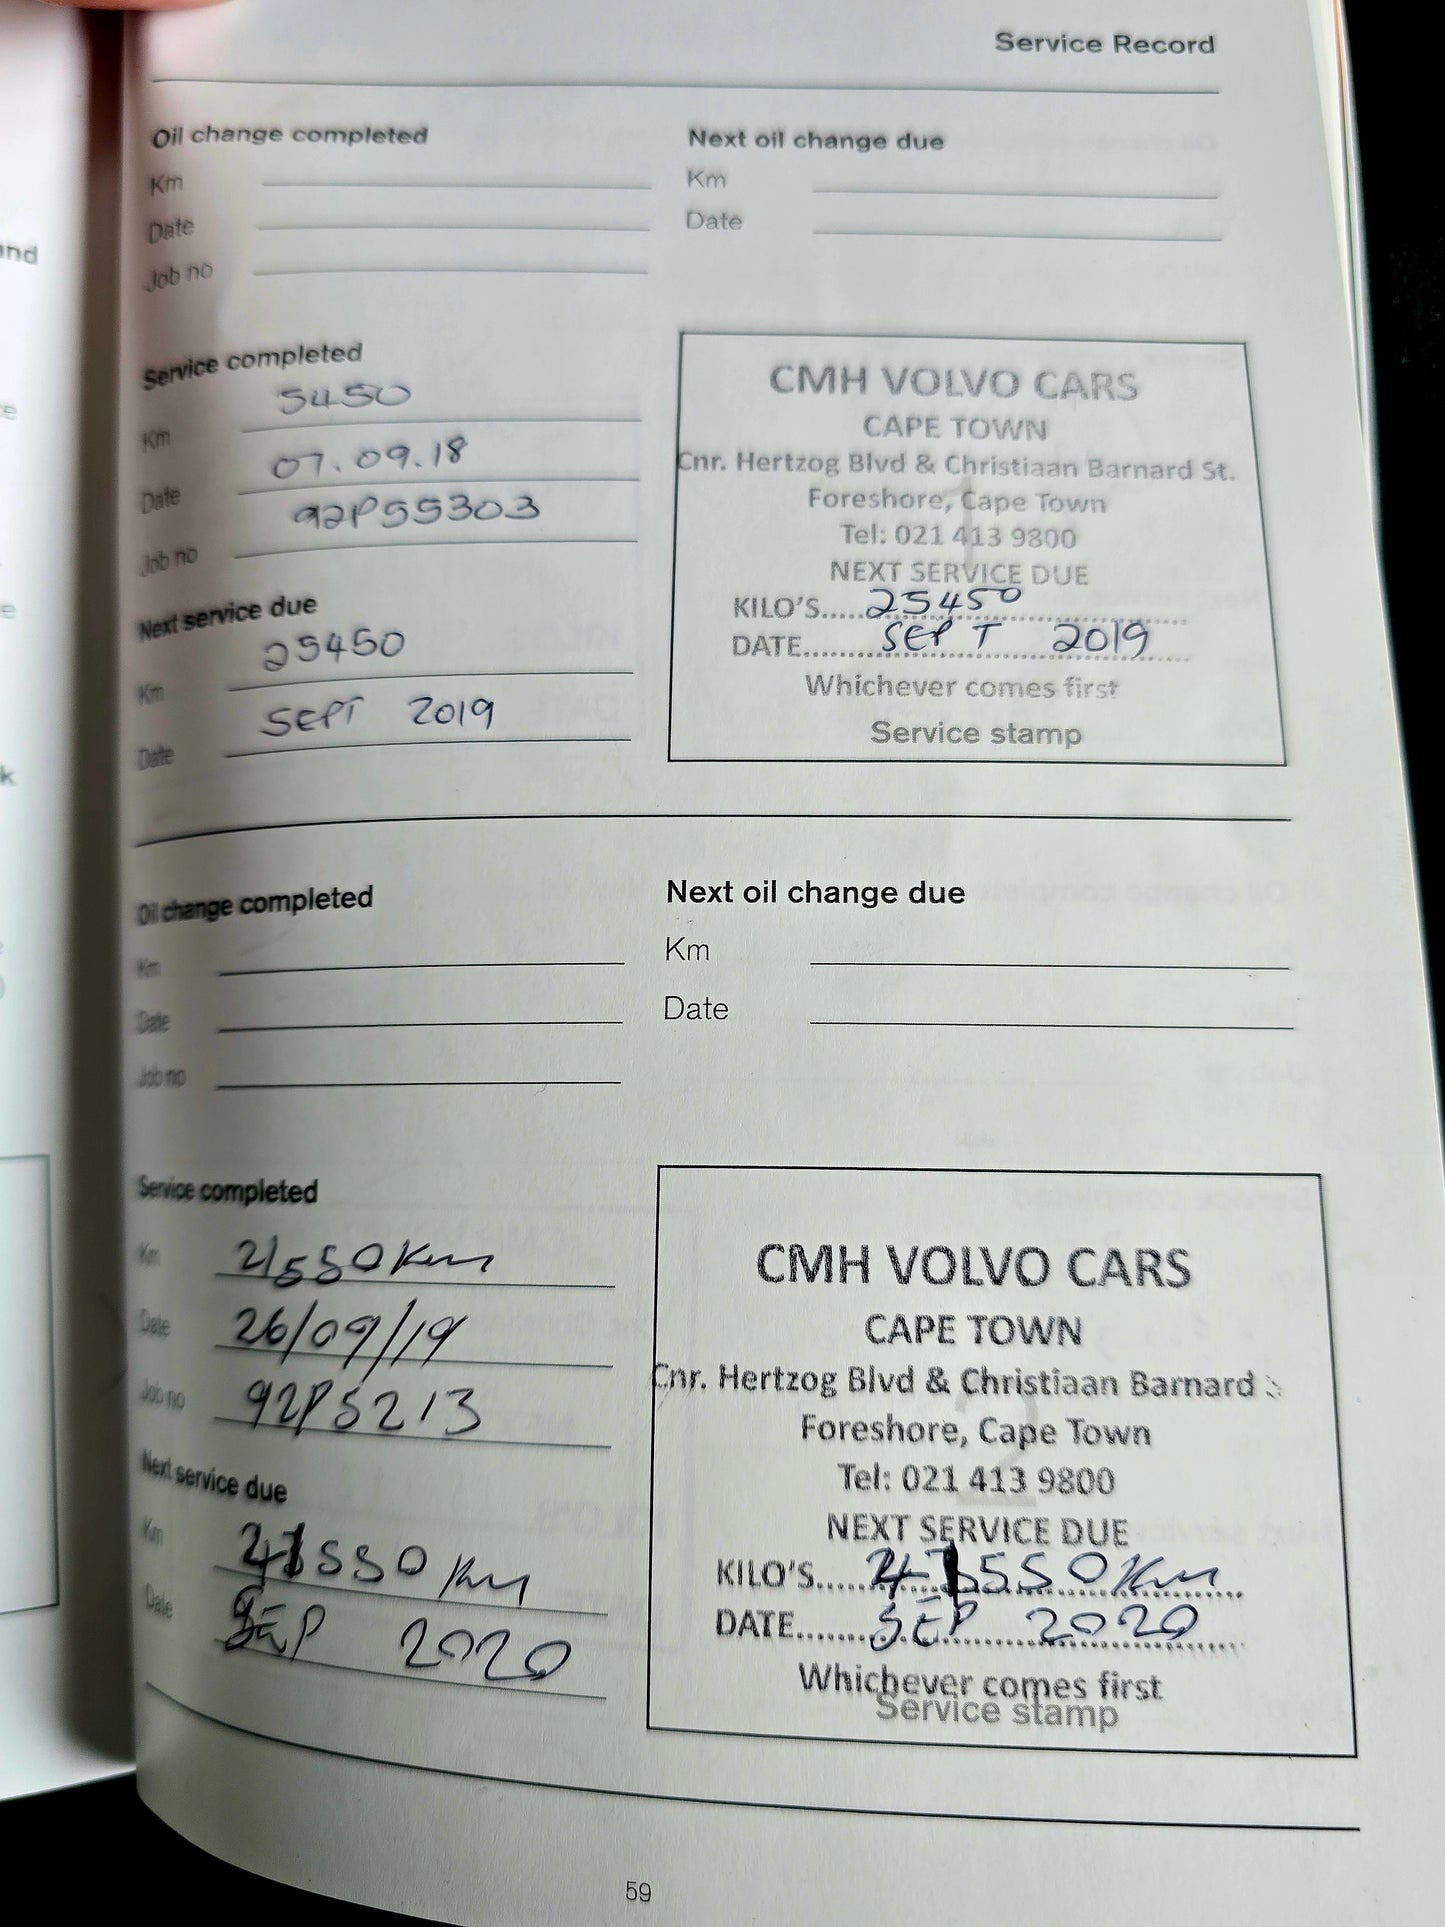 Service Record
Oil change completed
Km
Date
Job no
Next oil change due
Km
Date
Service completed
Km 5450
Date 07.09.18
Job no 92P55303
Next service due
Km 25450
Date SEPT 2019
CMH VOLVO CARS
CAPE TOWN
Cnr. Hertzog Blvd & Christiaan Barnard St.
Foreshore, Cape Town
Tel: 021 413 9800
NEXT SERVICE DUE
KILO'S.....25450
DATE.........SEPT 2019
Whichever comes first
Service stamp
1
Oil change completed
Km
Date
Job no
Next oil change due
Km
Date
Service completed
Km 21550Km
Date 26/09/19
Job no 92P5213
Next service due
Km 41550Km
Date SEP 2020
CMH VOLVO CARS
CAPE TOWN
Cnr. Hertzog Blvd & Christiaan Barnard
Foreshore, Cape Town
Tel: 021 413 9800
NEXT SERVICE DUE
KILO'S.....41550Km
DATE........SEP 2020
Whichever comes first
Service stamp
2
59
and
k